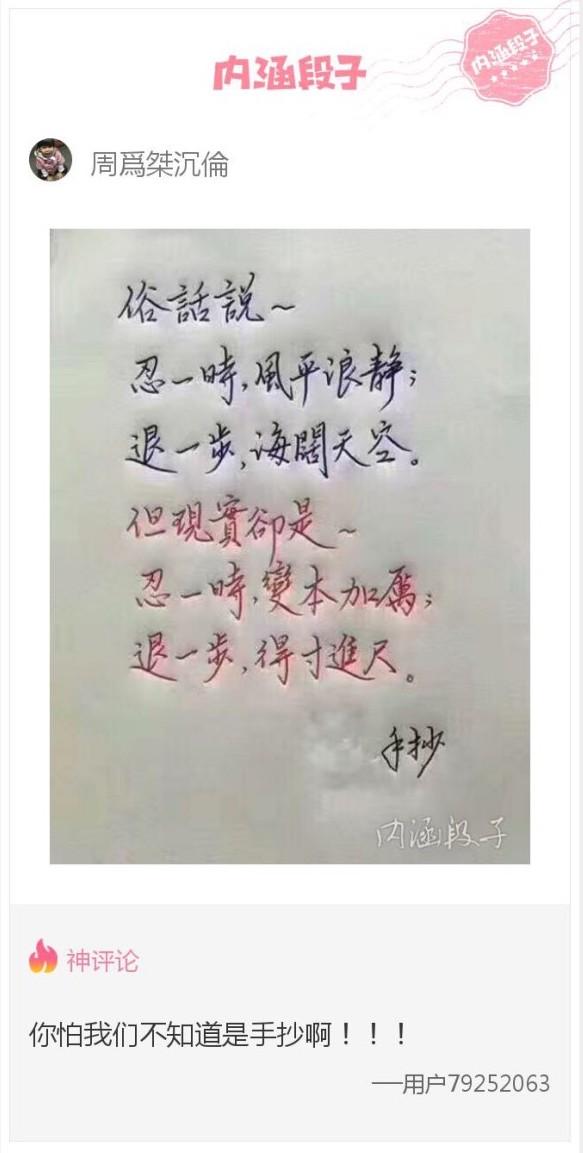 内涵段子
内涵段子
周爲桀沉倫
俗話説~
忍一時,風平浪静;
退一步,海闊天空。
但現實卻是~
忍一時,變本加厲;
退一步,得寸進尺。
手抄
内涵段子
神评论
你怕我们不知道是手抄啊！！！
──用户79252063